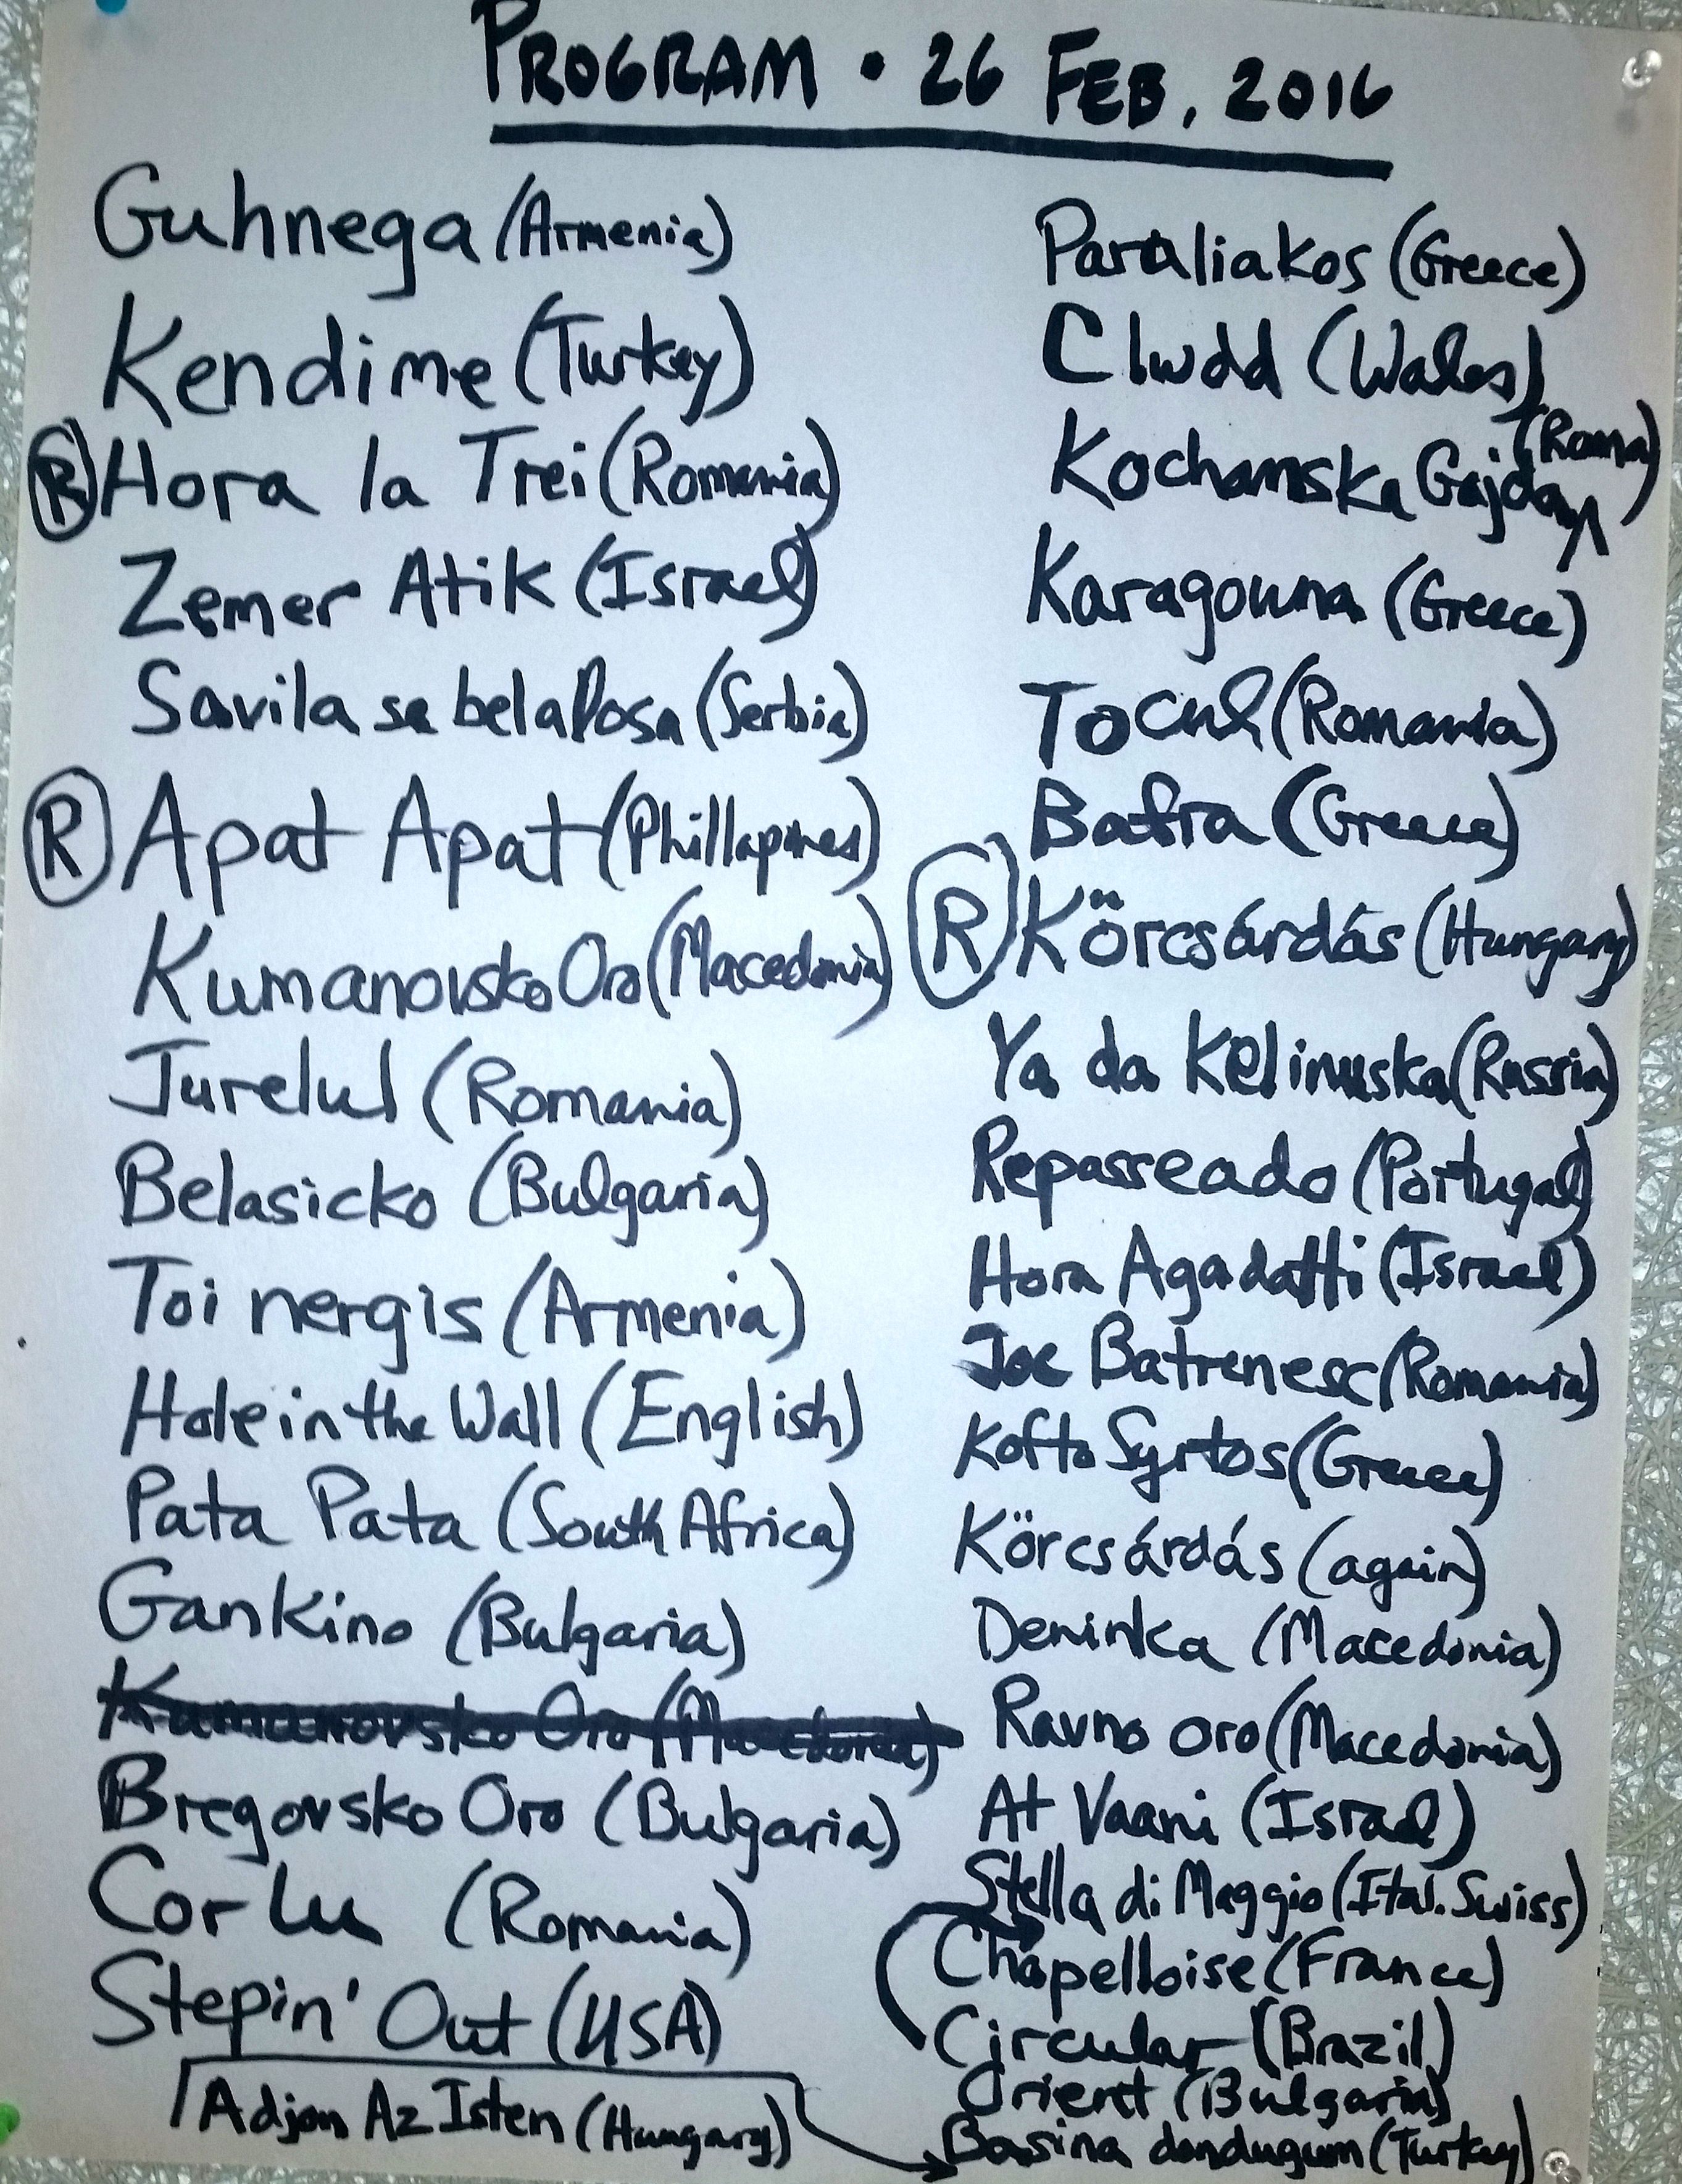 PROGRAM • 26 FEB, 2016
Guhnega (Armenia)
Kendime (Turkey)
Ⓡ Hora la Trei (Romania)
Zemer Atik (Israel)
Savila se bela Losa (Serbia)
Ⓡ Apat Apat (Phillapines)
Kumanovsko Oro (Macedonia)
Jurelul (Romania)
Belasicko (Bulgaria)
Toi nergis (Armenia)
Hole in the Wall (English)
Pata Pata (South Africa)
Gankino (Bulgaria)
Kumanovsko Oro (Macedonia)
Bregovsko Oro (Bulgaria)
Corlu (Romania)
Stepin' Out (USA)
Adjon Az Isten (Hungary)
Paraliakos (Greece)
Clwdd (Wales)
Kochanska Gajda (Roma)
Karagouna (Greece)
Tocul (Romania)
Bafra (Greece)
Ⓡ Körcsárdás (Hungary)
Ya da Kelinuska (Russia)
Repasseado (Portugal)
Hora Agadatti (Israel)
Joc Batrenesc (Romania)
Kofto Syrtos (Greece)
Körcsárdás (again)
Deninka (Macedonia)
Ravno Oro (Macedonia)
At Vaani (Israel)
Stella di Maggio (Ital. Swiss)
Chapelloise (France)
Circular (Brazil)
Orient (Bulgaria)
Basina dondugum (Turkey)